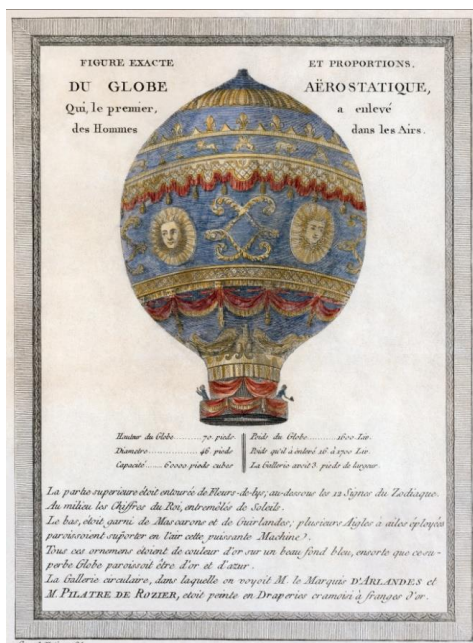 FIGURE EXACTE ET PROPORTIONS,
DU GLOBE AËROSTATIQUE,
Qui, le premier, a enlevé
des Hommes dans les Airs.
Hauteur du Globe.........70 pieds
Diametre..................46 pieds
Capacité......60000 pieds cubes
Poids du Globe.........1600 Liv.
Poids qu'il à enlevé 16 à 1700 Liv.
La Gallerie avoit 3. pieds de largeur.
La partie superieure étoit entourée de Fleurs-de-lys; au-dessous les 12 Signes du Zodiaque.
Au milieu les Chiffres du Roi, entremêlés de Soleils.
Le bas, étoit garni de Mascarons et de Guirlandes; plusieurs Aigles à ailes éployées
paroissoient suporter en l'air cette puissante Machine.
Tous ces ornemens étoient de couleur d'or sur un beau fond bleu, ensorte que ce su-
perbe Globe paroissoit être d'or et d'azur.
La Gallerie circulaire, dans laquelle on voyoit M. le Marquis D'ARLANDES et
M. PILATRE DE ROZIER, étoit peinte en Draperies cramoisi à franges d'or.